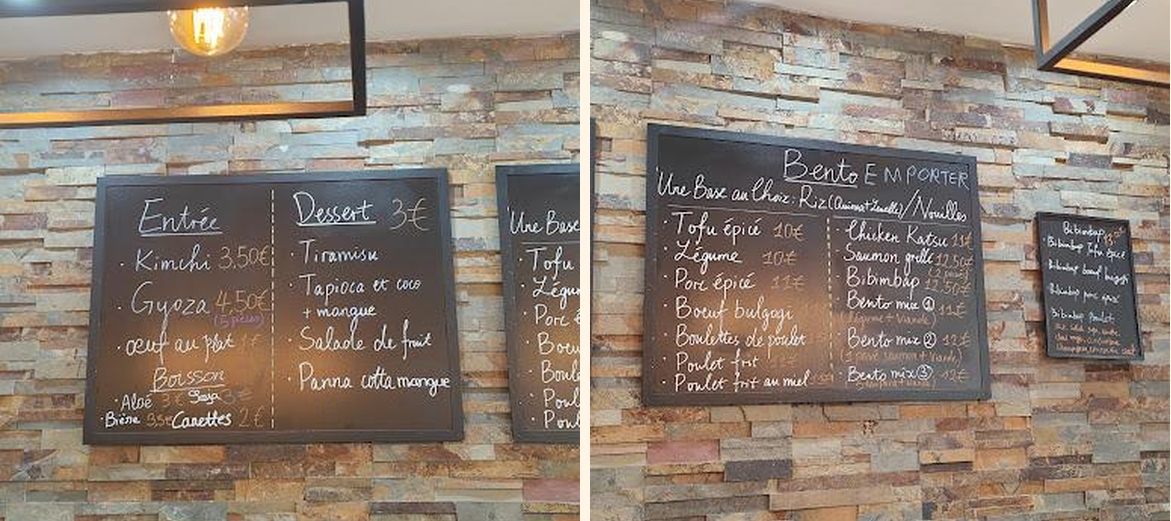 Entrée
· Kimchi 3.50€
· Gyoza 4,50€
(5 pièces)
· œuf au plat 1€
Boisson
· Aloé 3€ Soja 3€
· Bière 3.5€ Canettes 2€
Dessert 3€
· Tiramisu
· Tapioca et coco
+ mangue
· Salade de fruit
· Panna cotta mangue
Une Base
· Tofu
· Légum
· Porc é
· Boeu
· Boule
· Poul
· Poul
Bento EMPORTER
Une Base au Choix: Riz (Quinoa+Lentilles) / Nouilles
· Tofu épicé 10€
· Légume 10€
· Porc épicé 11€
· Boeuf bulgogi
· Boulettes de poulet
· Poulet frit
· Poulet frit au miel
· Chicken Katsu 11€
· Saumon grillé 12.50€
· Bibimbap 12.50€
· Bento mix ① 11€
(légume + Viande)
· Bento mix ② 12€
(1 pavé saumon + Viande)
· Bento mix ③ 12€
Bibimbap
· Bibimbap Tofu épicé
· Bibimbap boeuf bulgogi
· Bibimbap porc épicé
· Bibimbap Poulet